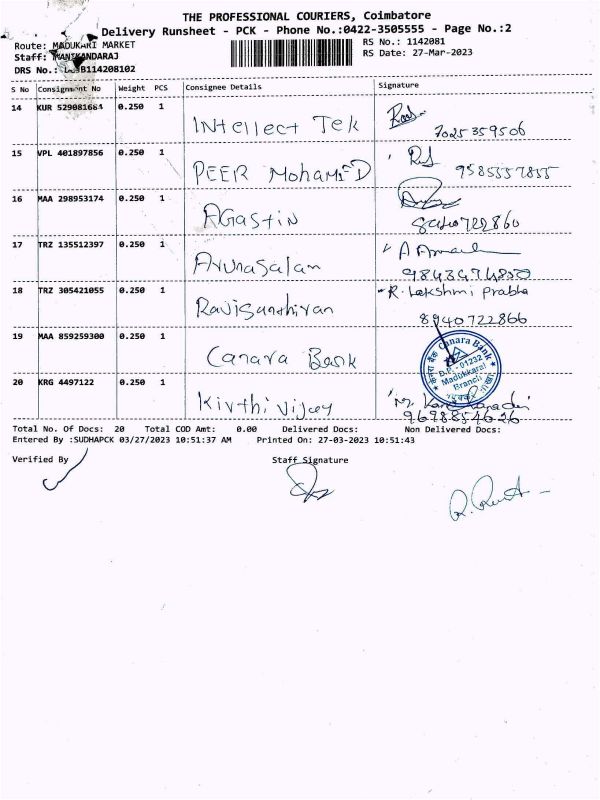 THE PROFESSIONAL COURIERS, Coimbatore
Delivery Runsheet - PCK - Phone No.:0422-3505555 - Page No.:2
Route: MADUKARI MARKET
RS No.: 1142081
Staff: MANIKANDARAJ
RS Date: 27-Mar-2023
DRS No.: B114208102
S No Consignment No Weight PCS Consignee Details Signature
14 KUR 529081684 0.250 1 Intellect Tek
7025359506
15 VPL 401897856 0.250 1 PEER MohamED
9585557855
16 MAA 298953174 0.250 1 AGastin
8940722860
17 TRZ 135512397 0.250 1 Arunasalam
18 TRZ 305421055 0.250 1 Ravisanthiran R. Lakshmi Prabha
8940722866
19 MAA 859259300 0.250 1 Canara Bank
Canara Bank
D.P.-01232
Madukkarai
Branch
20 KRG 4497122 0.250 1 Kirthi vijay
Total No. Of Docs: 20 Total COD Amt: 0.00 Delivered Docs: Non Delivered Docs:
Entered By :SUDHAPCK 03/27/2023 10:51:37 AM Printed On: 27-03-2023 10:51:43
Verified By Staff Signature